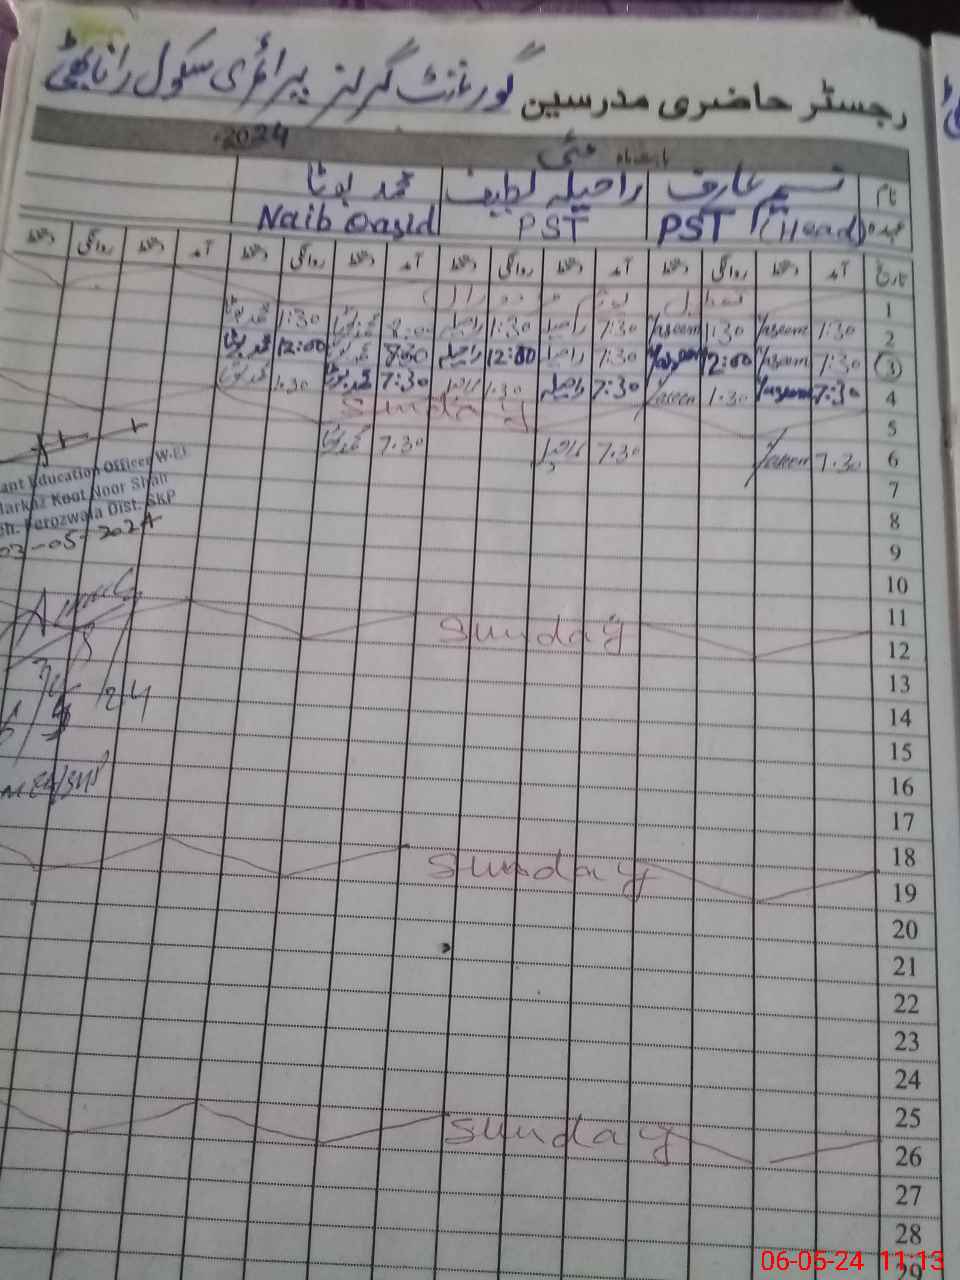 رجسٹر حاضری مدرسین گورنمنٹ گرلز پرائمری سکول رانا بھٹی
مئی 2024
نام نسیم عارف راحیلہ لطیف محمد بوٹا
عہدہ PST (Head) PST Naib Qasid
تاریخ آمد دستخط روانگی دستخط آمد دستخط روانگی دستخط آمد دستخط روانگی دستخط آمد دستخط روانگی دستخط
1
2 7:30 Naseem 1:30 Naseem 7:30 راحیلہ 1:30 راحیلہ 8:00 محمد بوٹا 1:30 محمد بوٹا
3 7:30 Naseem 12:00 Naseem 7:30 راحیلہ 12:00 راحیلہ 8:00 محمد بوٹا 12:00 محمد بوٹا
4 7:30 Naseem 1:30 Naseem 7:30 راحیلہ 1:30 راحیلہ 7:30 محمد بوٹا 1:30 محمد بوٹا
5 Sunday
6 7:30 Naseem 7:30 راحیلہ 7:30 محمد بوٹا
ant Education Officer W-EE
Markaz Koot Noor Shah
eh. Ferozwala Dist. SKP
03-05-2024
7
8
9
10
11
12 Sunday
13
14
15
16
17
18
19 Sunday
20
21
22
23
24
25
26 Sunday
27
28
29
06-05-24 11:13